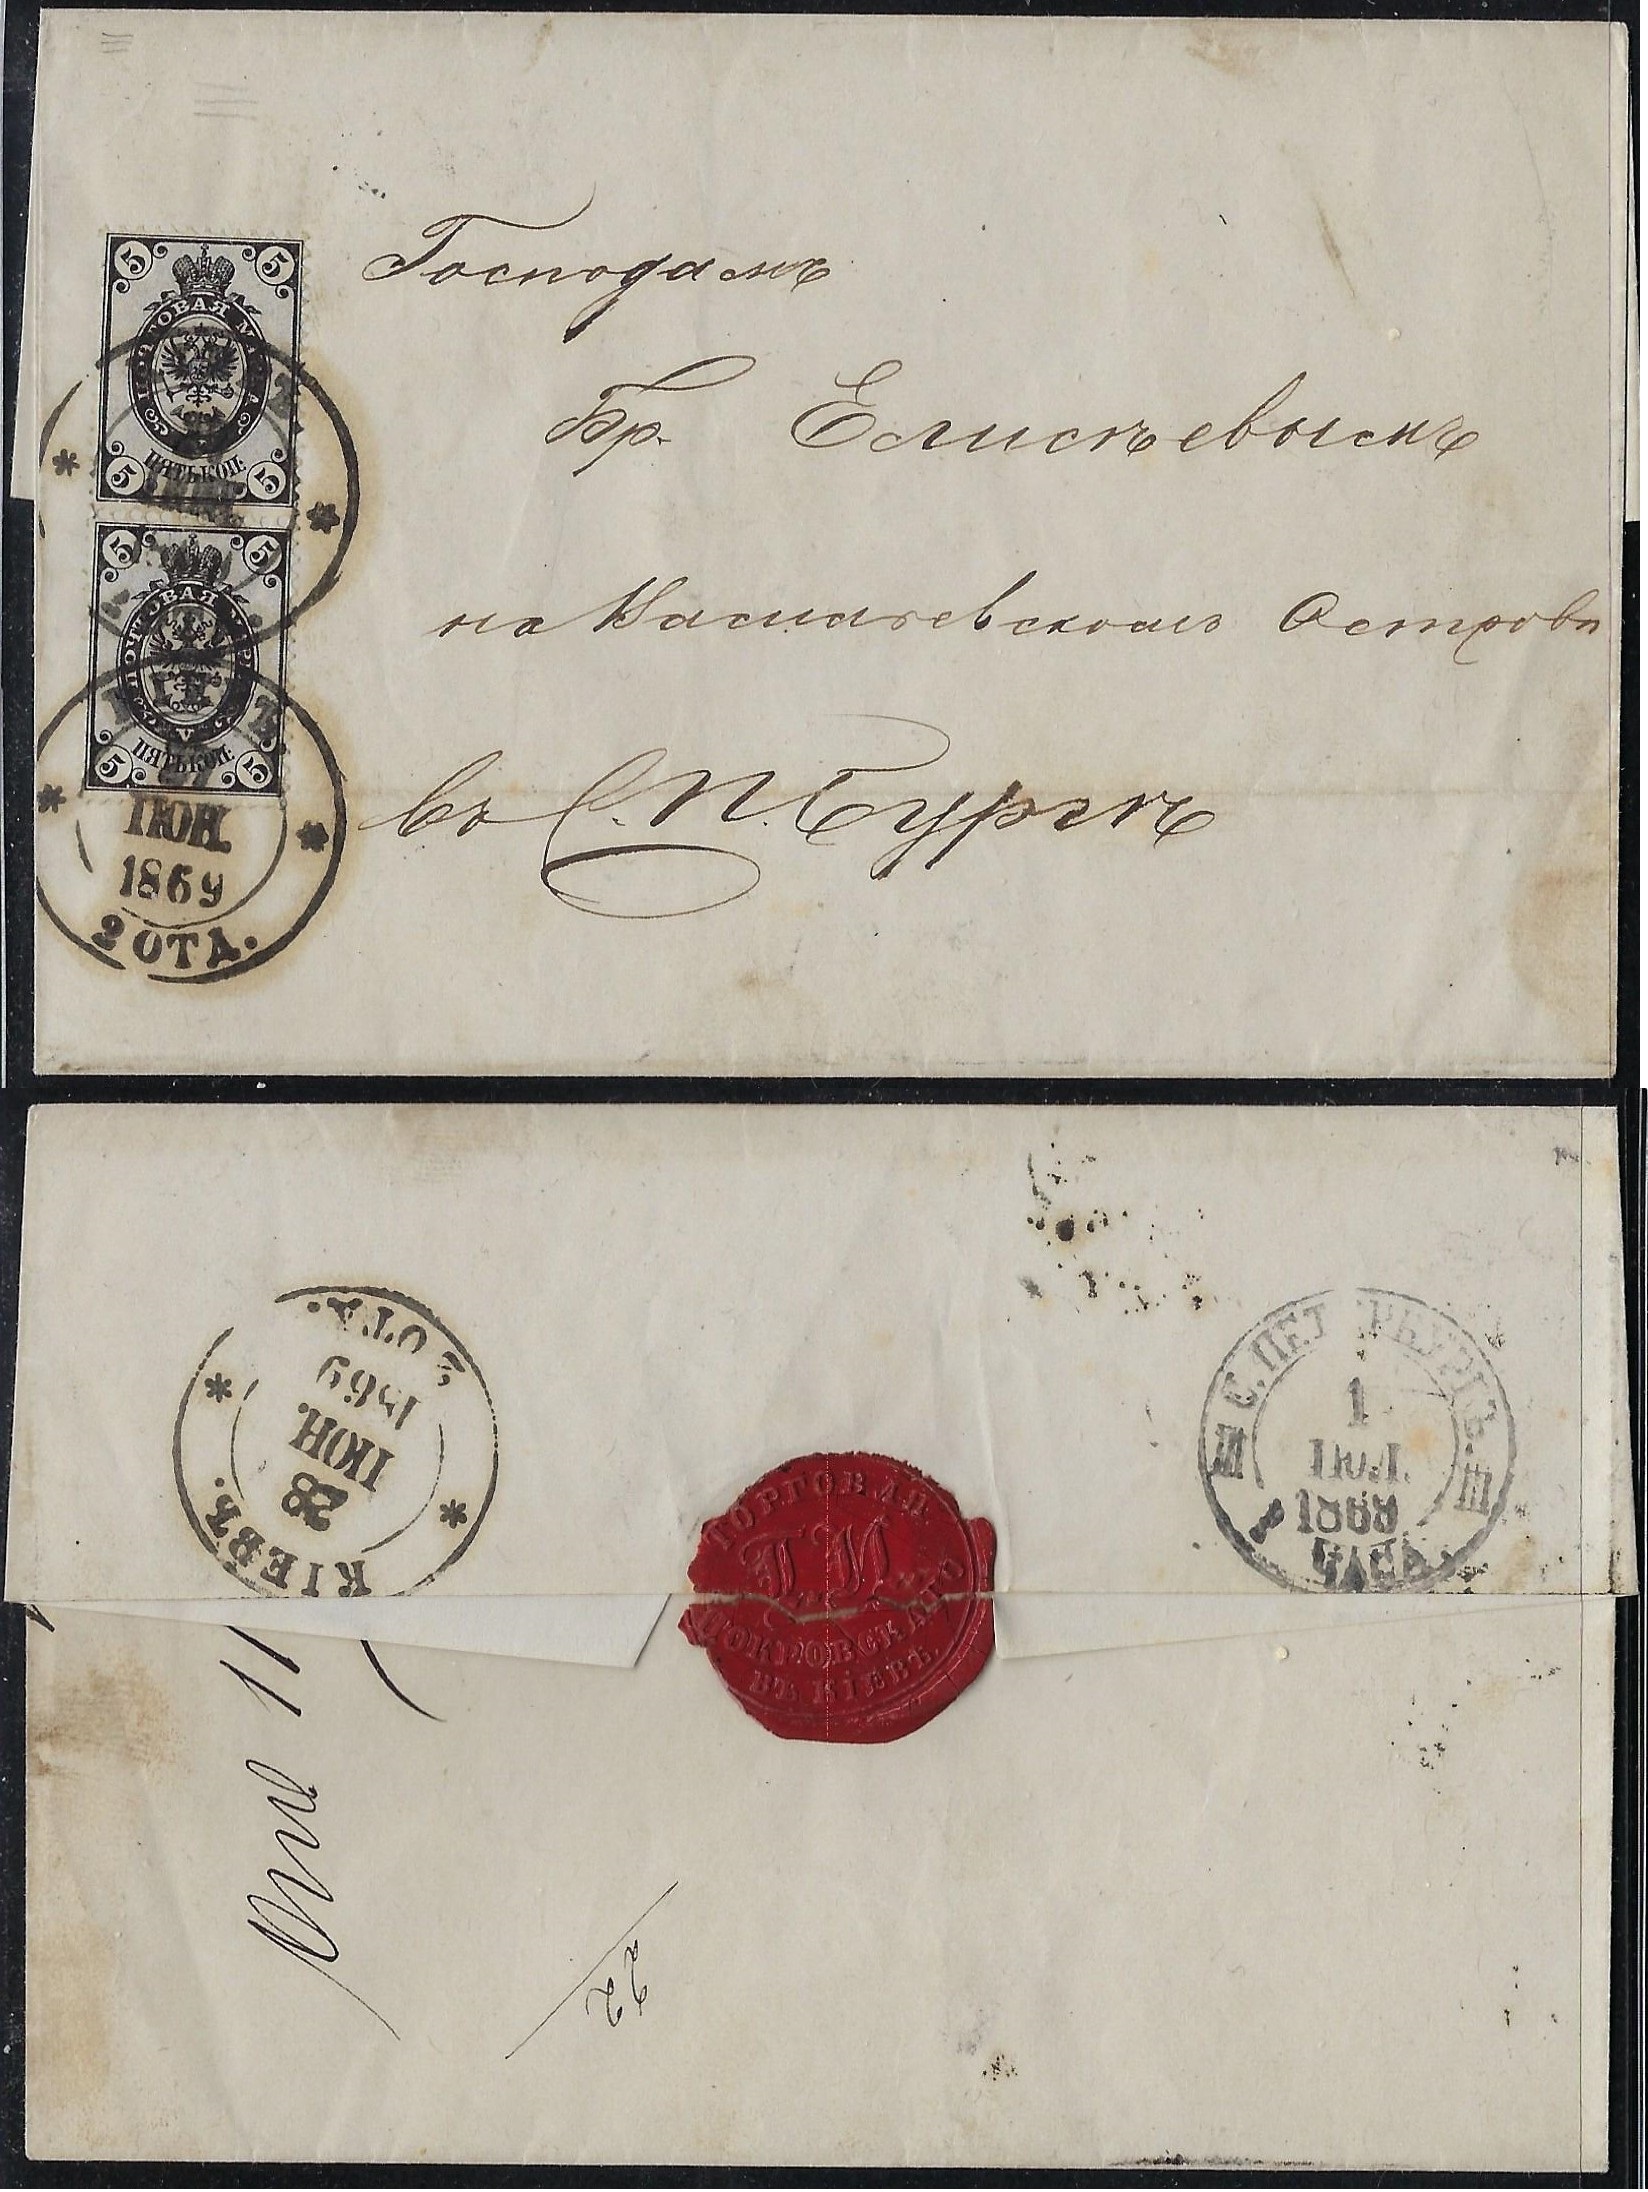 5 5
ПОЧТОВАЯ МАРКА
5 ПЯТЬ КОП. 5
5 5
ПОЧТОВАЯ МАРКА
V
5 ПЯТЬ КОП. 5
ІЮН.
1869
2 ОТД.
Господамъ
Бр. Елисѣевымъ
на Васильевскомъ Островѣ
въ С.П.Бургѣ
КІЕВЪ.
28
ІЮН.
1869
2 ОТД.
С.ПЕТЕРБУРГЪ.
1
ІЮЛ.
1869
III III
ТОРГОВАЛ.
І.И
ПОКРОВСКАГО
ВЪ КІЕВѢ
11
22